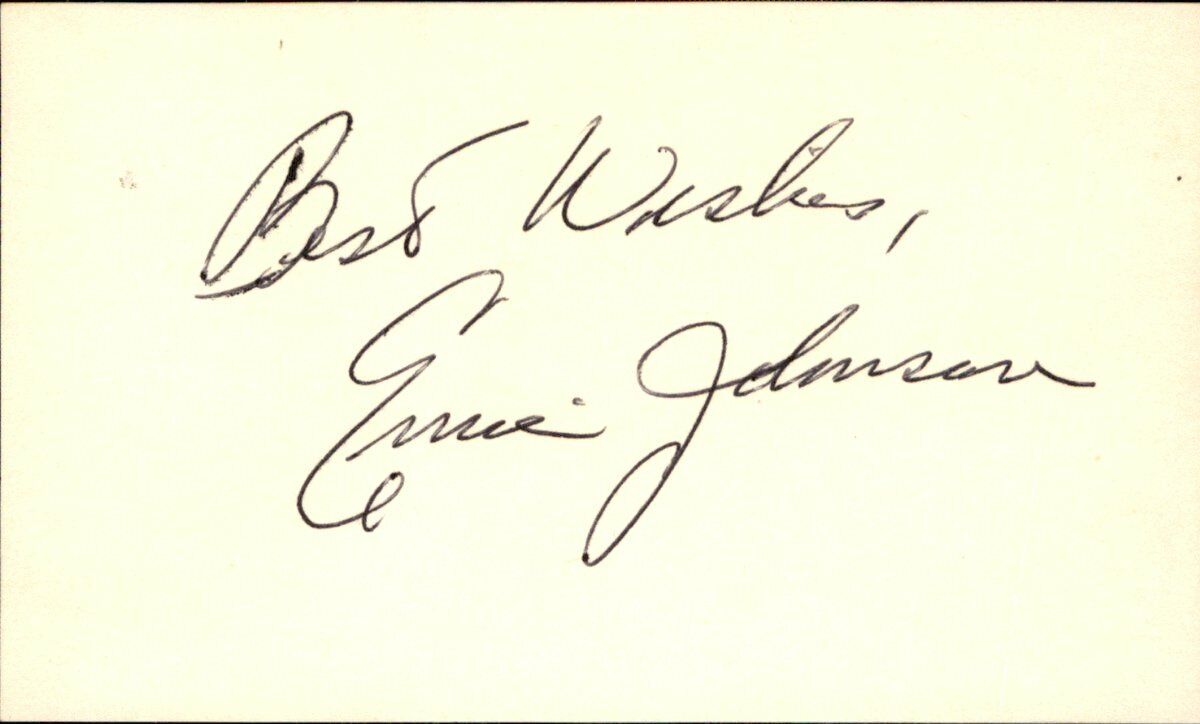 Best Wishes,
Ernie Johnson